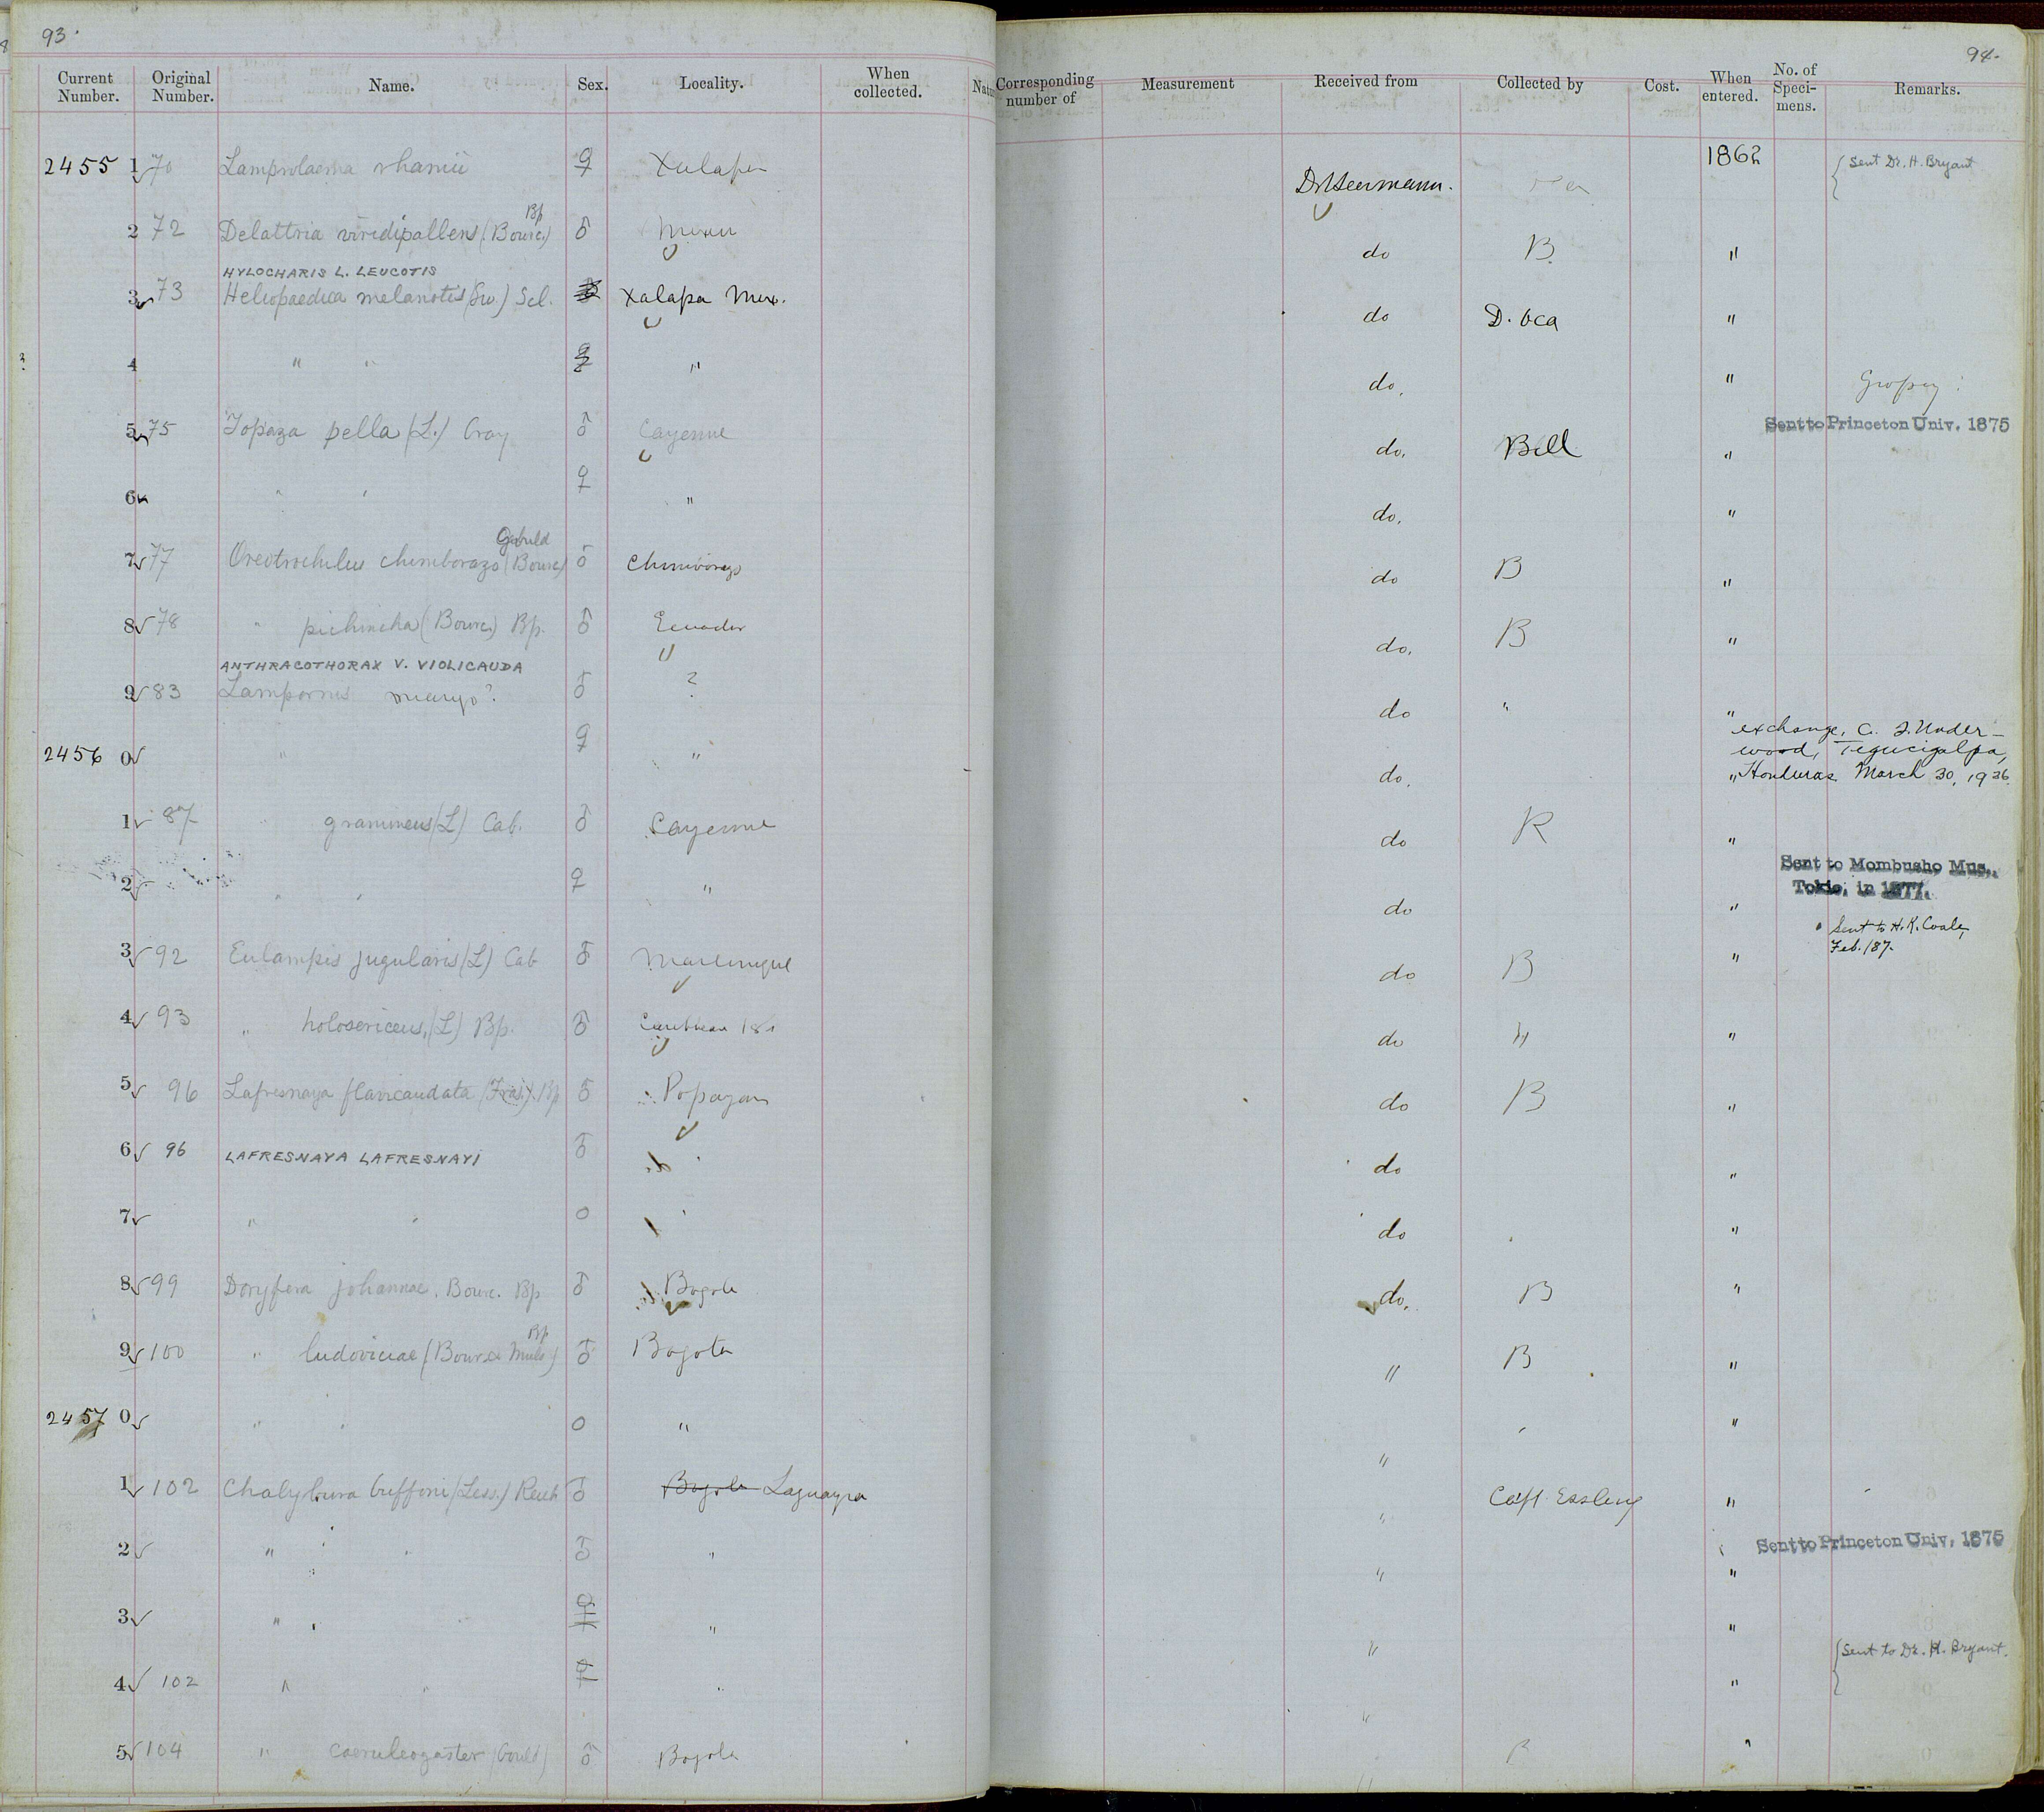 93.
94.
Current Number. Original Number. Name. Sex. Locality. When collected. Natu
Corresponding number of Measurement Received from Collected by Cost. When entered. No. of Speci-mens. Remarks.
2455 1 70 Lamprolaema rhamii ♀ Xalapa Dr Heermann. 1862 Sent Dr. H. Bryant
Bp
2 72 Delattria viridipallens (Bourc.) ♂ Mexico do B. "
HYLOCHARIS L. LEUCOTIS
3 73 Heliopaedica melanotis (Sw.) Scl. Xalapa Mex. do D. Oca "
4 " " ♀ " do. "
Sent to Princeton Univ. 1875
5 75 Topaza pella (L.) Gray ♂ Cayenne do. Bell "
6 " " ♀ " do. "
Gould
7 77 Oreotrochilus chimborazo (Bourc) ♂ Chimborazo do B "
8 78 " pichincha (Bourc) Bp. ♂ Ecuador do. B "
ANTHRACOTHORAX V. VIOLICAUDA
9 83 Lampornis mango? ♂ ? do " "
exchange, C. F. Under-
wood, Tegucigalpa,
Honduras March 30, 1936.
2456 0 " ♀ " do. "
1 87 " gramineus (L) Cab. ♂ Cayenne do R "
Sent to Mombusho Mus.,
Tokio, in 1877.
2 " " ♀ " do "
Sent to H. K. Coale,
Feb. 187.
3 92 Eulampis jugularis (L) Cab ♂ Martinique do B "
4 93 " holosericeus, (L) Bp. ♂ Caribbean Isl do " "
5 96 Lafresnaya flavicaudata (Fras.) Bp ♂ Popayan do B "
6 96 LAFRESNAYA LAFRESNAYI ♂ " do "
7 " " O " do "
8 99 Doryfera johannae, Bourc. Bp ♂ Bogota do. B "
Bp
9 100 " ludoviciae (Bourc & Muls) ♂ Bogota " B "
2457 0 " " O " " "
1 102 Chalybura buffoni (Less.) Reich ♂ Bogota Laguayra " Capt Essling "
Sent to Princeton Univ. 1875
2 " " ♂ " " "
3 " " ♀ " " "
Sent to Dr. H. Bryant.
4 102 " " ♀ " " "
5 104 " caeruleogaster (Gould) ♂ Bogota B "